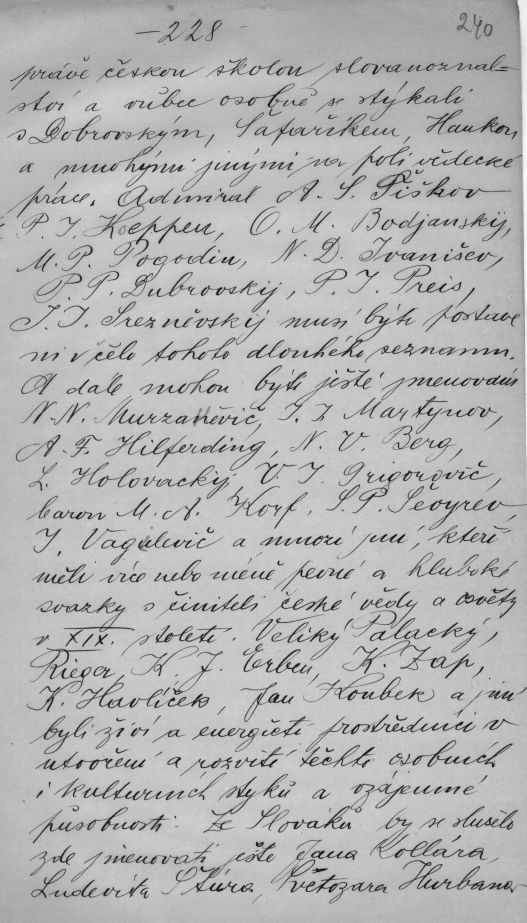 - 228 -
240
právě českou školou slovanoznal-
ství a vůbec osobně se stýkali
s Dobrovským, Šafaříkem, Hankou
a mnohými jinými na poli vědecké
práce. Admiral A. S. Šiškov
P. I. Koeppen, O. M. Bodjanskij,
M. P. Pogodin, N. D. Ivanišev,
P. P. Dubrovskij, P. I. Preis,
I. I. Srezněvskij musí býti postave
ni v čelo tohoto dlouhého seznamu.
A dále mohou býti ještě jmenováni
N. N. Murzakěvič, I. I. Martynov,
A. F. Hilferding, N. V. Berg,
L. Holovackij, V. I. Grigorovič,
baron M. A. Korf, S. P. Ševyrev,
I. Vagilevič a mnozí jiní, kteří
měli více nebo méně pevné a hluboké
svazky s činiteli české vědy a osvěty
v XIX. století. Veliký Palacký,
Rieger, K. J. Erben, K. Zap,
K. Havlíček, Jan Koubek a jiní
byli živí a energičtí prostředníci v
utvoření a rozvití těchto osobních
i kulturních styků a vzájemné
působnosti. Ze Slováků by se slušelo
zde jmenovati ještě Jana Kollára,
Ludevíta Štúra, Světozara Hurbana-